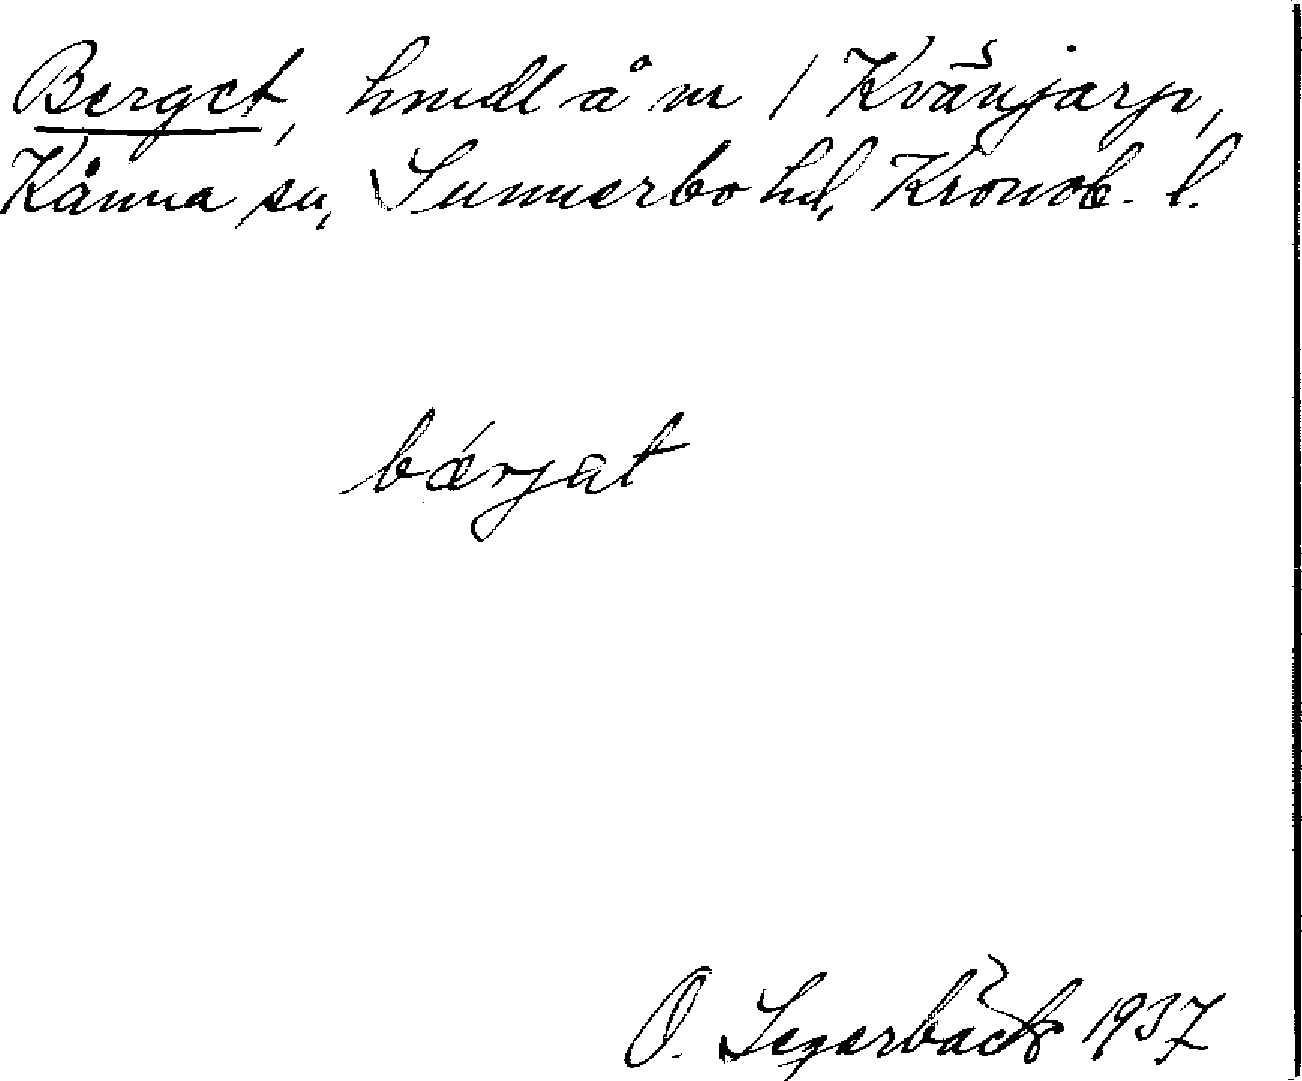 Berget, hmdl å m 1 Kvänjarp,
Kånna sn, Sunnerbo hd, Kronob. l.
bǽrjat
O. Segerbäck 1937